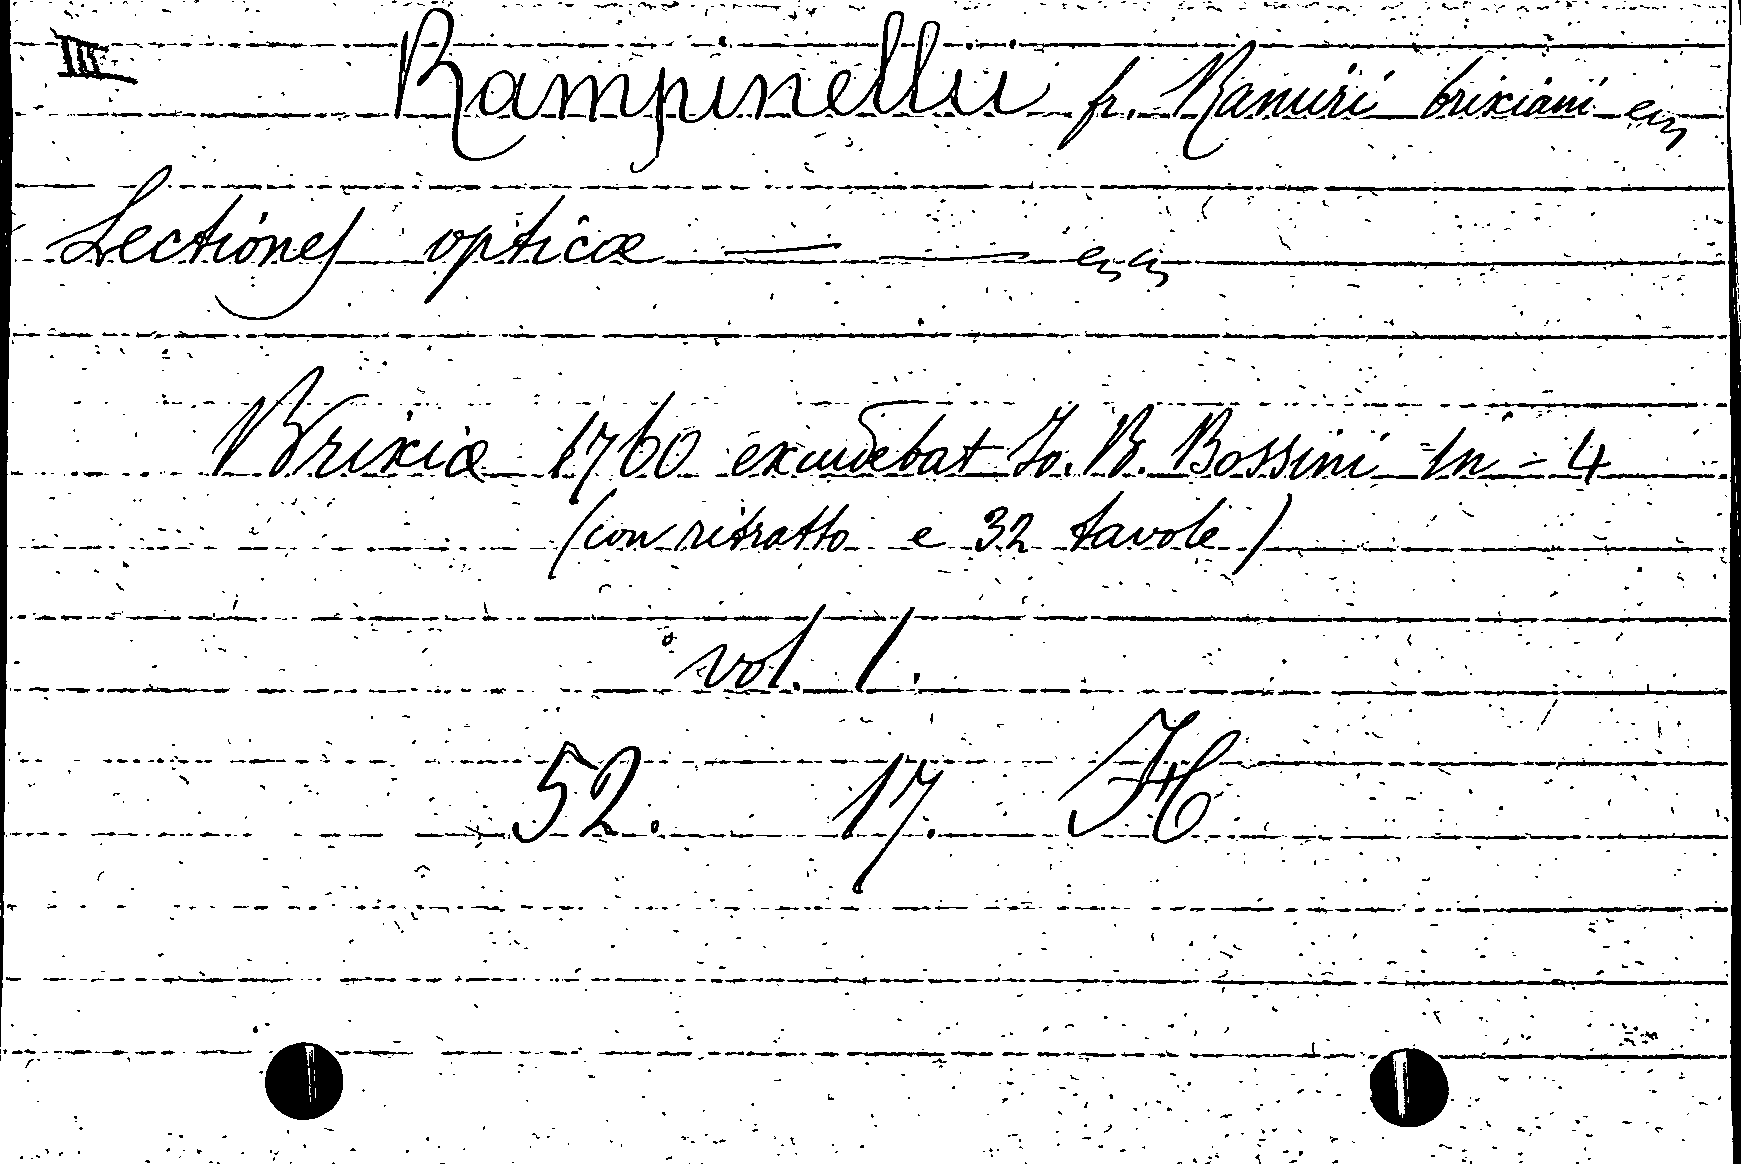 III
Rampinellii fr. Ramiri brixiani ecc
Lectiones opticæ — — ecc ecc
Brixiæ 1760 excudebat Jo. B. Bossini In-4
(con ritratto e 32 tavole)
vol. 1.
52. 17. H